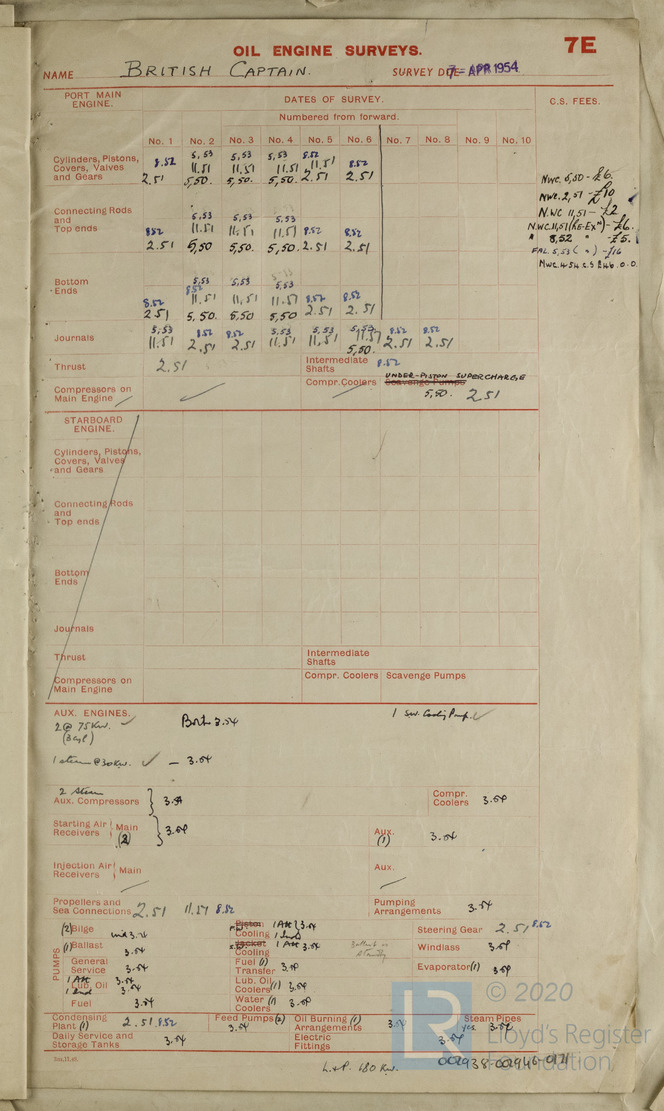 OIL ENGINE SURVEYS.
7E
NAME BRITISH CAPTAIN. SURVEY DUE 7 - APR 1954
PORT MAIN ENGINE.
DATES OF SURVEY.
C.S. FEES.
Numbered from forward.
No. 1 No. 2 No. 3 No. 4 No. 5 No. 6 No. 7 No. 8 No. 9 No. 10
Cylinders, Pistons,
Covers, Valves
and Gears
5,53 5,53 5,53 8.52
8.52 11.51 11.51 11.51 11.51 8.52
2.51 5,50. 5,50. 5,50. 2.51 2.51
NWC. 5,50 - £6.
NWC. 2,51 - £10
N.WC 11,51 - £2
N.WC. 11,51 (Re-Exn) - £6.
" 8,52 " £5.
FAL. 5,53 ( " ) - £16
NWC. 4.54 C.S £46.0.0.
Connecting Rods
and
Top ends
5,53 5,53 5,53
8.52 11.51 11.51 11.51 8.52 8.52
2.51 5,50 5,50. 5,50. 2.51 2.51
Bottom
Ends
5,53 5,53 5,53
8.52
8.52 11.51 11,51 11.51 8.52 8.52
2.51 5,50. 5,50 5,50 2.51 2.51
Journals
5,53 8.52 8.52 5,53 5,53 5,53 8.52 8.52
11.51 2.51 2.51 11.51 11,51 11.51 2.51 2.51
5,50.
Thrust 2.51 Intermediate Shafts 8.52
Compressors on
Main Engine
Compr. Coolers
UNDER-PISTON SUPERCHARGE
Scavenge Pumps
5,50. 2.51
STARBOARD
ENGINE.
Cylinders, Pistons,
Covers, Valves
and Gears
Connecting Rods
and
Top ends
Bottom
Ends
Journals
Thrust Intermediate Shafts
Compressors on
Main Engine
Compr. Coolers Scavenge Pumps
AUX. ENGINES.
2 @ 75 KW. Both 3.54
(3 cyl)
1 S.W. Cooling Pump.
1 steam @ 30 KW. - 3.54
2 Steam
Aux. Compressors 3.54 Compr. Coolers 3.54
Starting Air Receivers Main (2) 3.54 Aux. (1) 3.54
Injection Air Receivers Main Aux.
Propellers and
Sea Connections 2.51 11.51 8.52
Pumping
Arrangements 3.54
PUMPS
(2) Bilge 3.54
(1) Ballast 3.54
General
Service 3.54
1 Att 3.54
Lub. Oil
1 Ind 3.54
Fuel 3.54
Piston Cooling 1 Att 3.54
1 Ind
Jacket Cooling 1 Att 3.54
Ballast as
Standby
Fuel (1)
Transfer 3.54
Lub. Oil
Coolers (1) 3.54
Water (1)
Coolers 3.54
Steering Gear 2.51 8.52
Windlass 3.54
Evaporator (1) 3.54
Condensing
Plant (1) 2.51. 8.52
Feed Pumps (2) 3.54
Oil Burning (1)
Arrangements 3.54
Steam Pipes
yes 3.54
Daily Service and
Storage Tanks 3.54
Electric
Fittings 3.54
L.&P. 180 KW.
002938-002946-0121
LR
© 2020
Lloyd's Register
Foundation